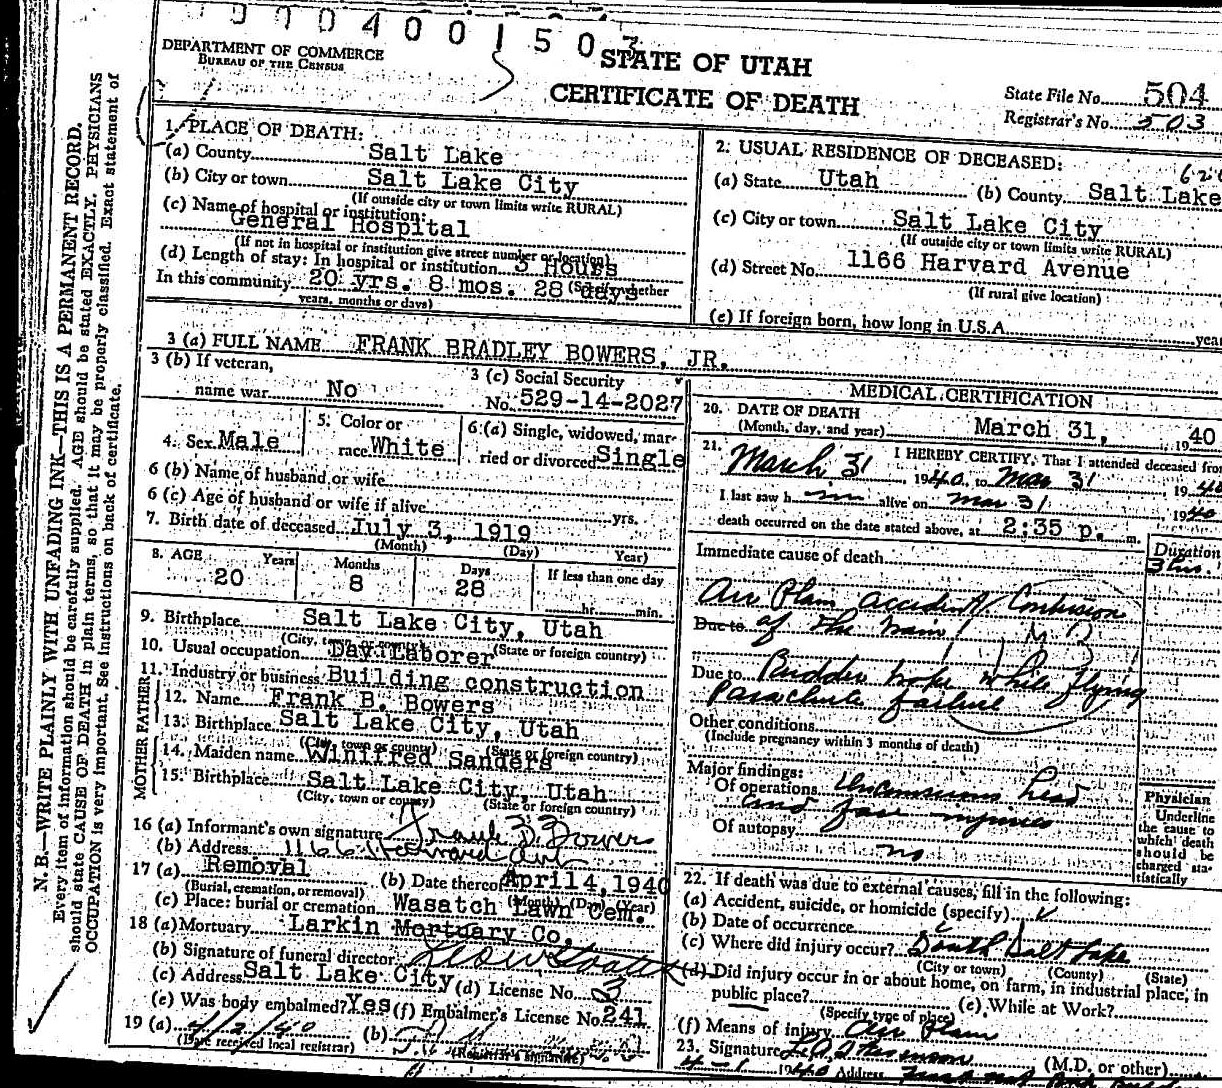 0 0 0 4 0 0 1 5 0
DEPARTMENT OF COMMERCE
BUREAU OF THE CENSUS
STATE OF UTAH
CERTIFICATE OF DEATH
State File No. 504
Registrar's No. 503
N. B.—WRITE PLAINLY WITH UNFADING INK—THIS IS A PERMANENT RECORD.
Every item of information should be carefully supplied. AGE should be stated EXACTLY. PHYSICIANS
should state CAUSE OF DEATH in plain terms, so that it may be properly classified. Exact statement of
OCCUPATION is very important. See instructions on back of certificate.
1. PLACE OF DEATH:
(a) County Salt Lake
(b) City or town Salt Lake City
(If outside city or town limits write RURAL)
(c) Name of hospital or institution:
General Hospital
(If not in hospital or institution give street number or location)
(d) Length of stay: In hospital or institution 3 Hours
In this community 20 yrs. 8 mos. 28 days (Specify whether
years, months or days)
2. USUAL RESIDENCE OF DECEASED:
(a) State Utah (b) County Salt Lake
(c) City or town Salt Lake City
(If outside city or town limits write RURAL)
(d) Street No. 1166 Harvard Avenue
(If rural give location)
(e) If foreign born, how long in U.S.A. year
3 (a) FULL NAME FRANK BRADLEY BOWERS, JR.
3 (b) If veteran,
name war No
3 (c) Social Security
No. 529-14-2027
4. Sex Male
5. Color or
race White
6 (a) Single, widowed, mar-
ried or divorced Single
6 (b) Name of husband or wife
6 (c) Age of husband or wife if alive yrs.
7. Birth date of deceased July 3, 1919
(Month) (Day) Year)
8. AGE Years Months Days If less than one day
20 8 28 hr. min.
9. Birthplace Salt Lake City, Utah
(City, town or county) (State or foreign country)
10. Usual occupation Day Laborer
11. Industry or business Building construction
FATHER
12. Name Frank B. Bowers
13. Birthplace Salt Lake City, Utah
(City, town or county) (State or foreign country)
MOTHER
14. Maiden name Winifred Sanders
15. Birthplace Salt Lake City, Utah
(City, town or county) (State or foreign country)
16 (a) Informant's own signature Frank B. Bowers
(b) Address 1166 Harvard Ave
17 (a) Removal (b) Date thereof April 4, 1940
(Burial, cremation, or removal) (Month) (Day) (Year)
(c) Place: burial or cremation Wasatch Lawn Cem.
18 (a) Mortuary Larkin Mortuary Co.
(b) Signature of funeral director
(c) Address Salt Lake City (d) License No. 3
(e) Was body embalmed? Yes (f) Embalmer's License No. 241
19 (a) 4/2/40 (b)
(Date received local registrar) (Registrar's signature)
MEDICAL CERTIFICATION
20. DATE OF DEATH
(Month, day, and year) March 31, 1940
21. I HEREBY CERTIFY, That I attended deceased from
March 31 1940, to Mar 31, 1940
I last saw him alive on Mar 31, 1940
death occurred on the date stated above, at 2:35 p. m.
Duration
3 hrs.
Immediate cause of death
Air Plain accident / Contusion
Due to of the brain
Due to Rudder broke while flying
Parachute failure
Other conditions
(Include pregnancy within 3 months of death)
Major findings:
Of operations Unconscious head
and face injuries
Of autopsy
no
Physician
Underline
the cause to
which death
should be
charged sta-
tistically
22. If death was due to external causes, fill in the following:
(a) Accident, suicide, or homicide (specify)
(b) Date of occurrence
(c) Where did injury occur? South Salt Lake
(City or town) (County) (State)
(d) Did injury occur in or about home, on farm, in industrial place, in
public place? (e) While at Work?
(Specify type of place)
(f) Means of injury Air Plain
23. Signature (M.D. or other)
4-1 1940 Address